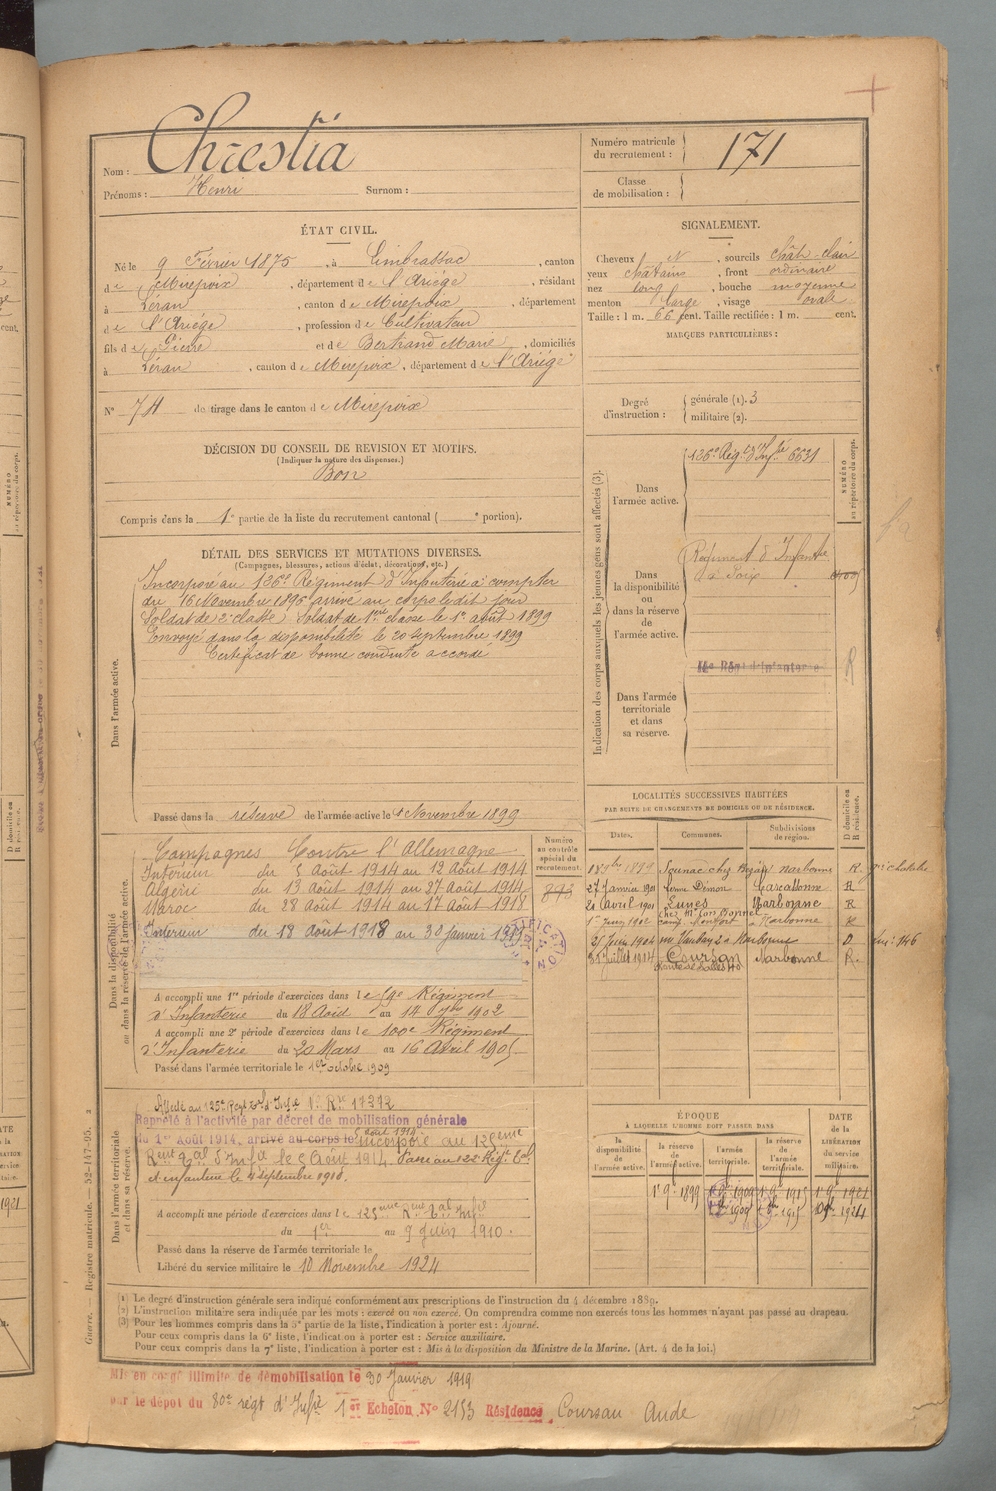 Chrestia
Nom :
Prénoms : Henri Surnom :
Numéro matricule
du recrutement : 171
Classe
de mobilisation :
ÉTAT CIVIL.
Né le 9 Février 1875, à Limbrassac, canton
de Mirepoix, département de l'Ariège, résidant
à Léran, canton de Mirepoix, département
de l'Ariège, profession de Cultivateur
fils de Pierre et de Bertrand Marie, domiciliés
à Léran, canton de Mirepoix, département de l'Ariège
N° 74 de tirage dans le canton de Mirepoix
SIGNALEMENT.
Cheveux N, sourcils chât. clair
yeux châtains, front ordinaire
nez long, bouche moyenne
menton large, visage ovale
Taille : 1 m. 66 cent. Taille rectifiée : 1 m. cent.
MARQUES PARTICULIÈRES :
Degré
d'instruction :
générale (1). 3
militaire (2).
DÉCISION DU CONSEIL DE REVISION ET MOTIFS.
(Indiquer la nature des dispenses.)
Bon
Compris dans la 1e partie de la liste du recrutement cantonal ( e portion).
DÉTAIL DES SERVICES ET MUTATIONS DIVERSES.
(Campagnes, blessures, actions d'éclat, décorations, etc.)
Dans l'armée active.
Incorporé au 126e Régiment d'Infanterie à compter
du 16 Novembre 1896 arrivé au corps le dit jour
Soldat de 2e classe Soldat de 1ère classe le 1er août 1899
Envoyé dans la disponibilité le 20 septembre 1899
Certificat de bonne conduite accordé
Passé dans la réserve de l'armée active le 1er Novembre 1899
Indication des corps auxquels les jeunes gens sont affectés (3).
NUMÉRO
au répertoire du corps.
Dans
l'armée active.
126e Régt d'Infie 6631
Dans
la disponibilité
ou
dans la réserve
de
l'armée active.
Régiment d'Infantie
de Foix
Dans l'armée
territoriale
et dans
sa réserve.
R
LOCALITÉS SUCCESSIVES HABITÉES
PAR SUITE DE CHANGEMENTS DE DOMICILE OU DE RÉSIDENCE.
Dates. Communes. Subdivisions
de région.
D domicile ou
R résidence.
Narbonne R
27 Janvier 1901 Carcassonne R
21 avril 1901 Narbonne R
1902 Narbonne R
21 Juin 1904 Narbonne D
31 Juillet 1914 Coursan Narbonne R.
Dans la disponibilité
ou dans la réserve de l'armée active.
Numéro
au contrôle
spécial du
recrutement.
Campagnes Contre l'Allemagne
Intérieur du 5 Août 1914 au 12 Août 1914
Algérie du 13 Août 1914 au 27 Août 1914
Maroc du 28 Août 1914 au 17 Août 1918
Intérieur du 18 Août 1918 au 30 Janvier 1919
A accompli une 1re période d'exercices dans le Régiment
d'Infanterie du 18 Août au 14 7bre 1902
A accompli une 2e période d'exercices dans le 100e Régiment
d'Infanterie du 20 Mars au 16 Avril 1905
Passé dans l'armée territoriale le 1er octobre 1909
Dans l'armée territoriale
et dans sa réserve.
Affecté au 125e Régt Tal d'Infie N° Rre 17272
Rappelé à l'activité par décret de mobilisation générale
du 1er Août 1914, arrivé au corps le 5 août 1914 incorporé au 125ème
Rgnt Tal d'Infie le 5 Août 1914. Passé au 122e Régt Tal
d'infanterie le 4 septembre 1918.
A accompli une période d'exercices dans le 125ème Rgnt Tal Infie
du 1er au 9 Juin 1910.
Passé dans la réserve de l'armée territoriale le
Libéré du service militaire le 10 Novembre 1924
ÉPOQUE
À LAQUELLE L'HOMME DOIT PASSER DANS
la
disponibilité
de l'armée active.
la
réserve de
l'armée active.
l'armée
territoriale.
la réserve
de
l'armée
territoriale.
DATE
de la
LIBÉRATION
du service
militaire.
1er 9bre 1899
(1) Le degré d'instruction générale sera indiqué conformément aux prescriptions de l'instruction du 4 décembre 1889.
(2) L'instruction militaire sera indiquée par les mots : exercé ou non exercé. On comprendra comme non exercés tous les hommes n'ayant pas passé au drapeau.
(3) Pour les hommes compris dans la 5e partie de la liste, l'indication à porter est : Ajourné.
Pour ceux compris dans la 6e liste, l'indication à porter est : Service auxiliaire.
Pour ceux compris dans la 7e liste, l'indication à porter est : Mis à la disposition du Ministre de la Marine. (Art. 4 de la loi.)
Guerre. — Registre matricule. — 52-147-95.
Mis en congé illimité de démobilisation le 30 Janvier 1919
par le dépôt du 80e régt d'Infie 1er Echelon N° 2153 Résidence Coursan Aude